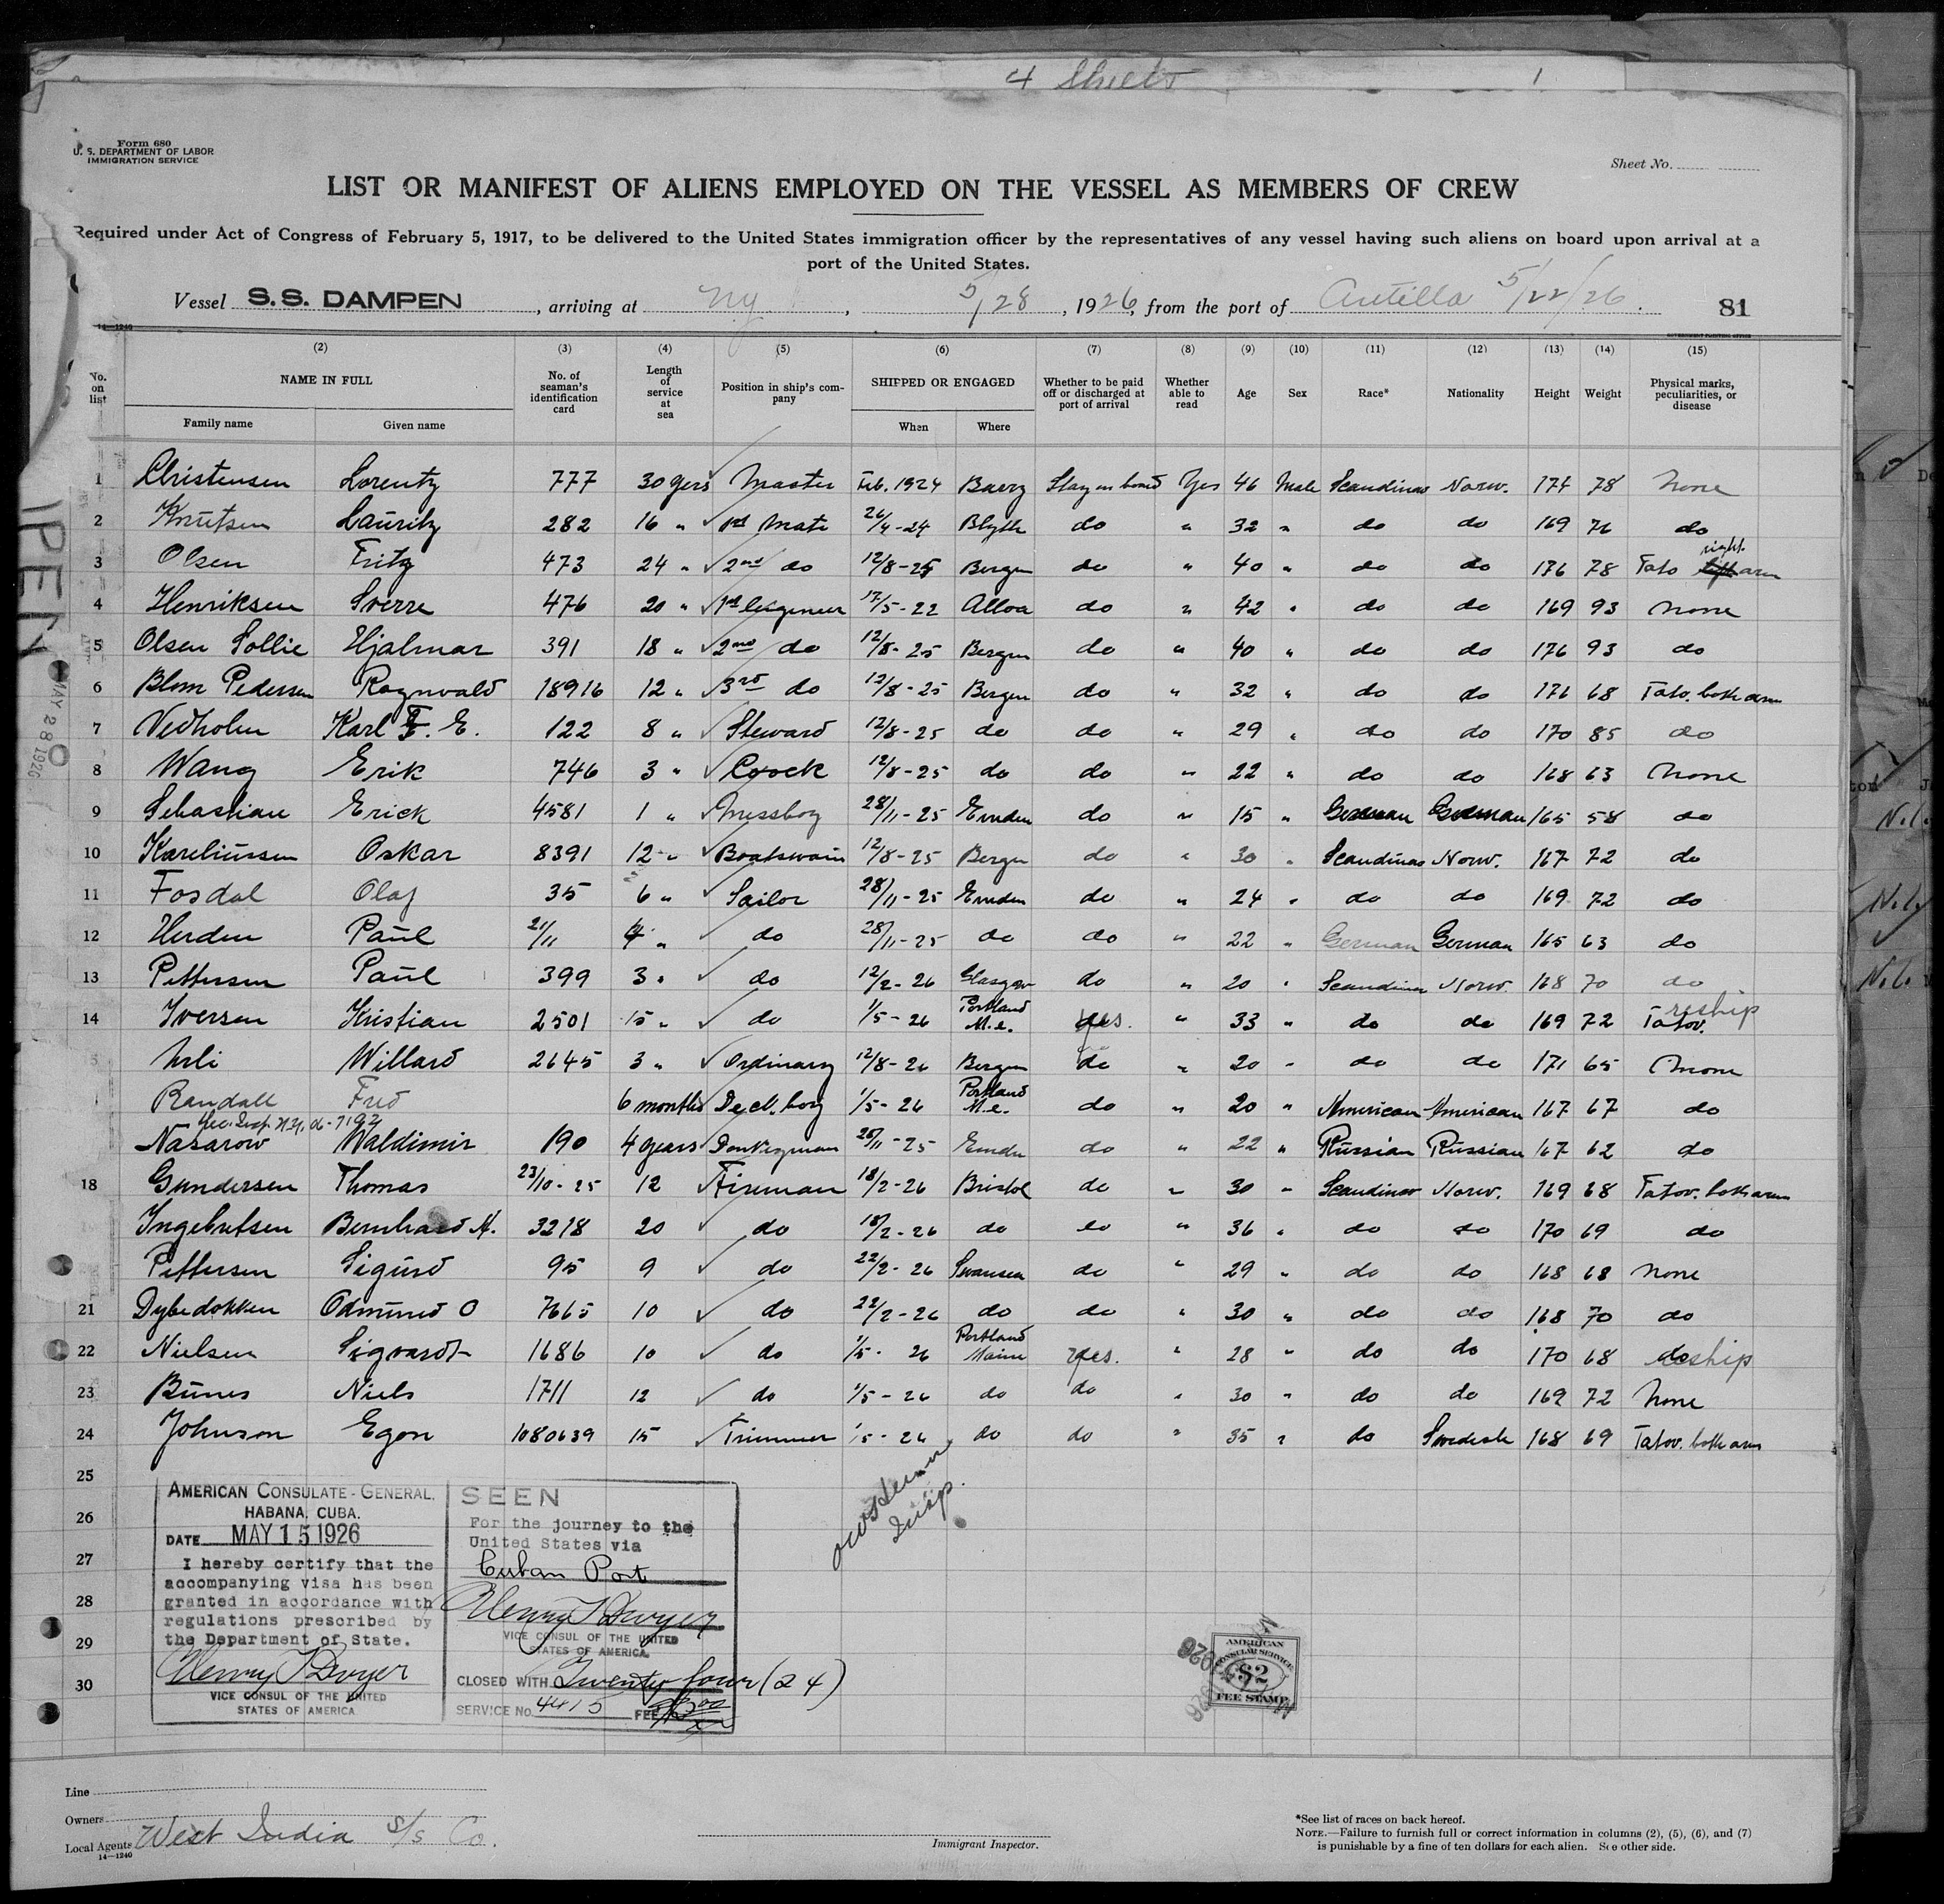 4 Sheets 1
Form 680
U. S. DEPARTMENT OF LABOR
IMMIGRATION SERVICE
Sheet No.
LIST OR MANIFEST OF ALIENS EMPLOYED ON THE VESSEL AS MEMBERS OF CREW
Required under Act of Congress of February 5, 1917, to be delivered to the United States immigration officer by the representatives of any vessel having such aliens on board upon arrival at a
port of the United States.
Vessel S.S. DAMPEN, arriving at Ny, 5/28, 1926, from the port of Antilla 5/22/26. 81
14—1240
GOVERNMENT PRINTING OFFICE
(2) (3) (4) (5) (6) (7) (8) (9) (10) (11) (12) (13) (14) (15)
No. on list NAME IN FULL No. of seaman's identification card Length of service at sea Position in ship's company SHIPPED OR ENGAGED Whether to be paid off or discharged at port of arrival Whether able to read Age Sex Race* Nationality Height Weight Physical marks, peculiarities, or disease
Family name Given name When Where
1 Christensen Lorentz 777 30 yers Master Feb. 1924 Barry Stay on board Yes 46 Male Scandinav Norw. 174 78 None
2 Knutsen Lauritz 282 16 " 1st Mate 26/4-24 Blyth do " 32 " do do 169 76 do
3 Olsen Fritz 473 24 " 2nd do 12/8-25 Bergen do " 40 " do do 176 78 Tato right arm
4 Henriksen Sverre 476 20 " 1st Engineer 17/5-22 Alloa do " 42 " do do 169 93 None
5 Olsen Sollie Hjalmar 391 18 " 2nd do 12/8-25 Bergen do " 40 " do do 176 93 do
6 Blom Pedersen Ragnvald 18916 12 " 3rd do 12/8-25 Bergen do " 32 " do do 176 68 Tato. both arm
7 Vedholm Karl F. E. 122 8 " Steward 12/8-25 do do " 29 " do do 170 85 do
8 Wang Erik 746 3 " Coock 12/8-25 do do " 22 " do do 168 63 None
9 Sebastian Erick 4581 1 " Messboy 28/11-25 Emden do " 15 " German German 165 58 do
10 Kareliussen Oskar 8391 12 " Boatswain 12/8-25 Bergen do " 30 " Scandinav Norw. 167 72 do
11 Fosdal Olaf 35 6 " Sailor 28/11-25 Emden do " 24 " do do 169 72 do
12 Herden Paul 21/11 4 " do 28/11-25 do do " 22 " German German 165 63 do
13 Pettersen Paul 399 3 " do 12/2-26 Glasgow do " 20 " Scandinav Norw. 168 70 do
14 Iversen Kristian 2501 15 " do 1/5-26 Portland M.e. yes. " 33 " do do 169 72 Tatov. reship
Willard 2645 3 " Ordinary 12/8-26 Bergen do " 20 " do do 171 65 None
Randall Fred 6 months Deck boy 1/5-26 Portland M.e. do " 20 " American American 167 67 do
Nasarow Waldimir 190 4 years Donkeyman 28/11-25 Emden do " 22 " Russian Russian 167 62 do
18 Gundersen Thomas 23/10-25 12 Fireman 18/2-26 Bristol do " 30 " Scandinav Norw. 169 68 Tatov. both arm
Ingebretsen Bernhard A. 3218 20 do 18/2-26 do do " 36 " do do 170 69 do
Pettersen Sigurd 95 9 do 22/2-26 Swansea do " 29 " do do 168 68 None
21 Dybedokken Odmund O 7665 10 do 22/2-26 do do " 30 " do do 168 70 do
22 Nielsen Sigvardt 1686 10 do 1/5-26 Portland Maine yes. " 28 " do do 170 68 reship
23 Bunes Niels 1711 12 do 1/5-26 do do " 30 " do do 169 72 None
24 Johnson Egon 1080639 15 Trimmer 1/5-26 do do " 35 " do Swedish 168 69 Tatov. both arm
25
26
27
28
29
30
AMERICAN CONSULATE-GENERAL,
HABANA, CUBA.
DATE MAY 15 1926
I hereby certify that the
accompanying visa has been
granted in accordance with
regulations prescribed by
the Department of State.
Henry T Dwyer
VICE CONSUL OF THE UNITED
STATES OF AMERICA
SEEN
For the journey to the
United States via
Cuban Port
Henry T Dwyer
VICE CONSUL OF THE UNITED
STATES OF AMERICA
CLOSED WITH Twenty four (24)
SERVICE No. 4415 FEE
Insp.
AMERICAN
CONSULAR SERVICE
$2
FEE STAMP
1926
MAY 28 1926
Line
Owners
Local Agents West India S/S Co.
14—1240
Immigrant Inspector.
*See list of races on back hereof.
NOTE.—Failure to furnish full or correct information in columns (2), (5), (6), and (7)
is punishable by a fine of ten dollars for each alien. See other side.